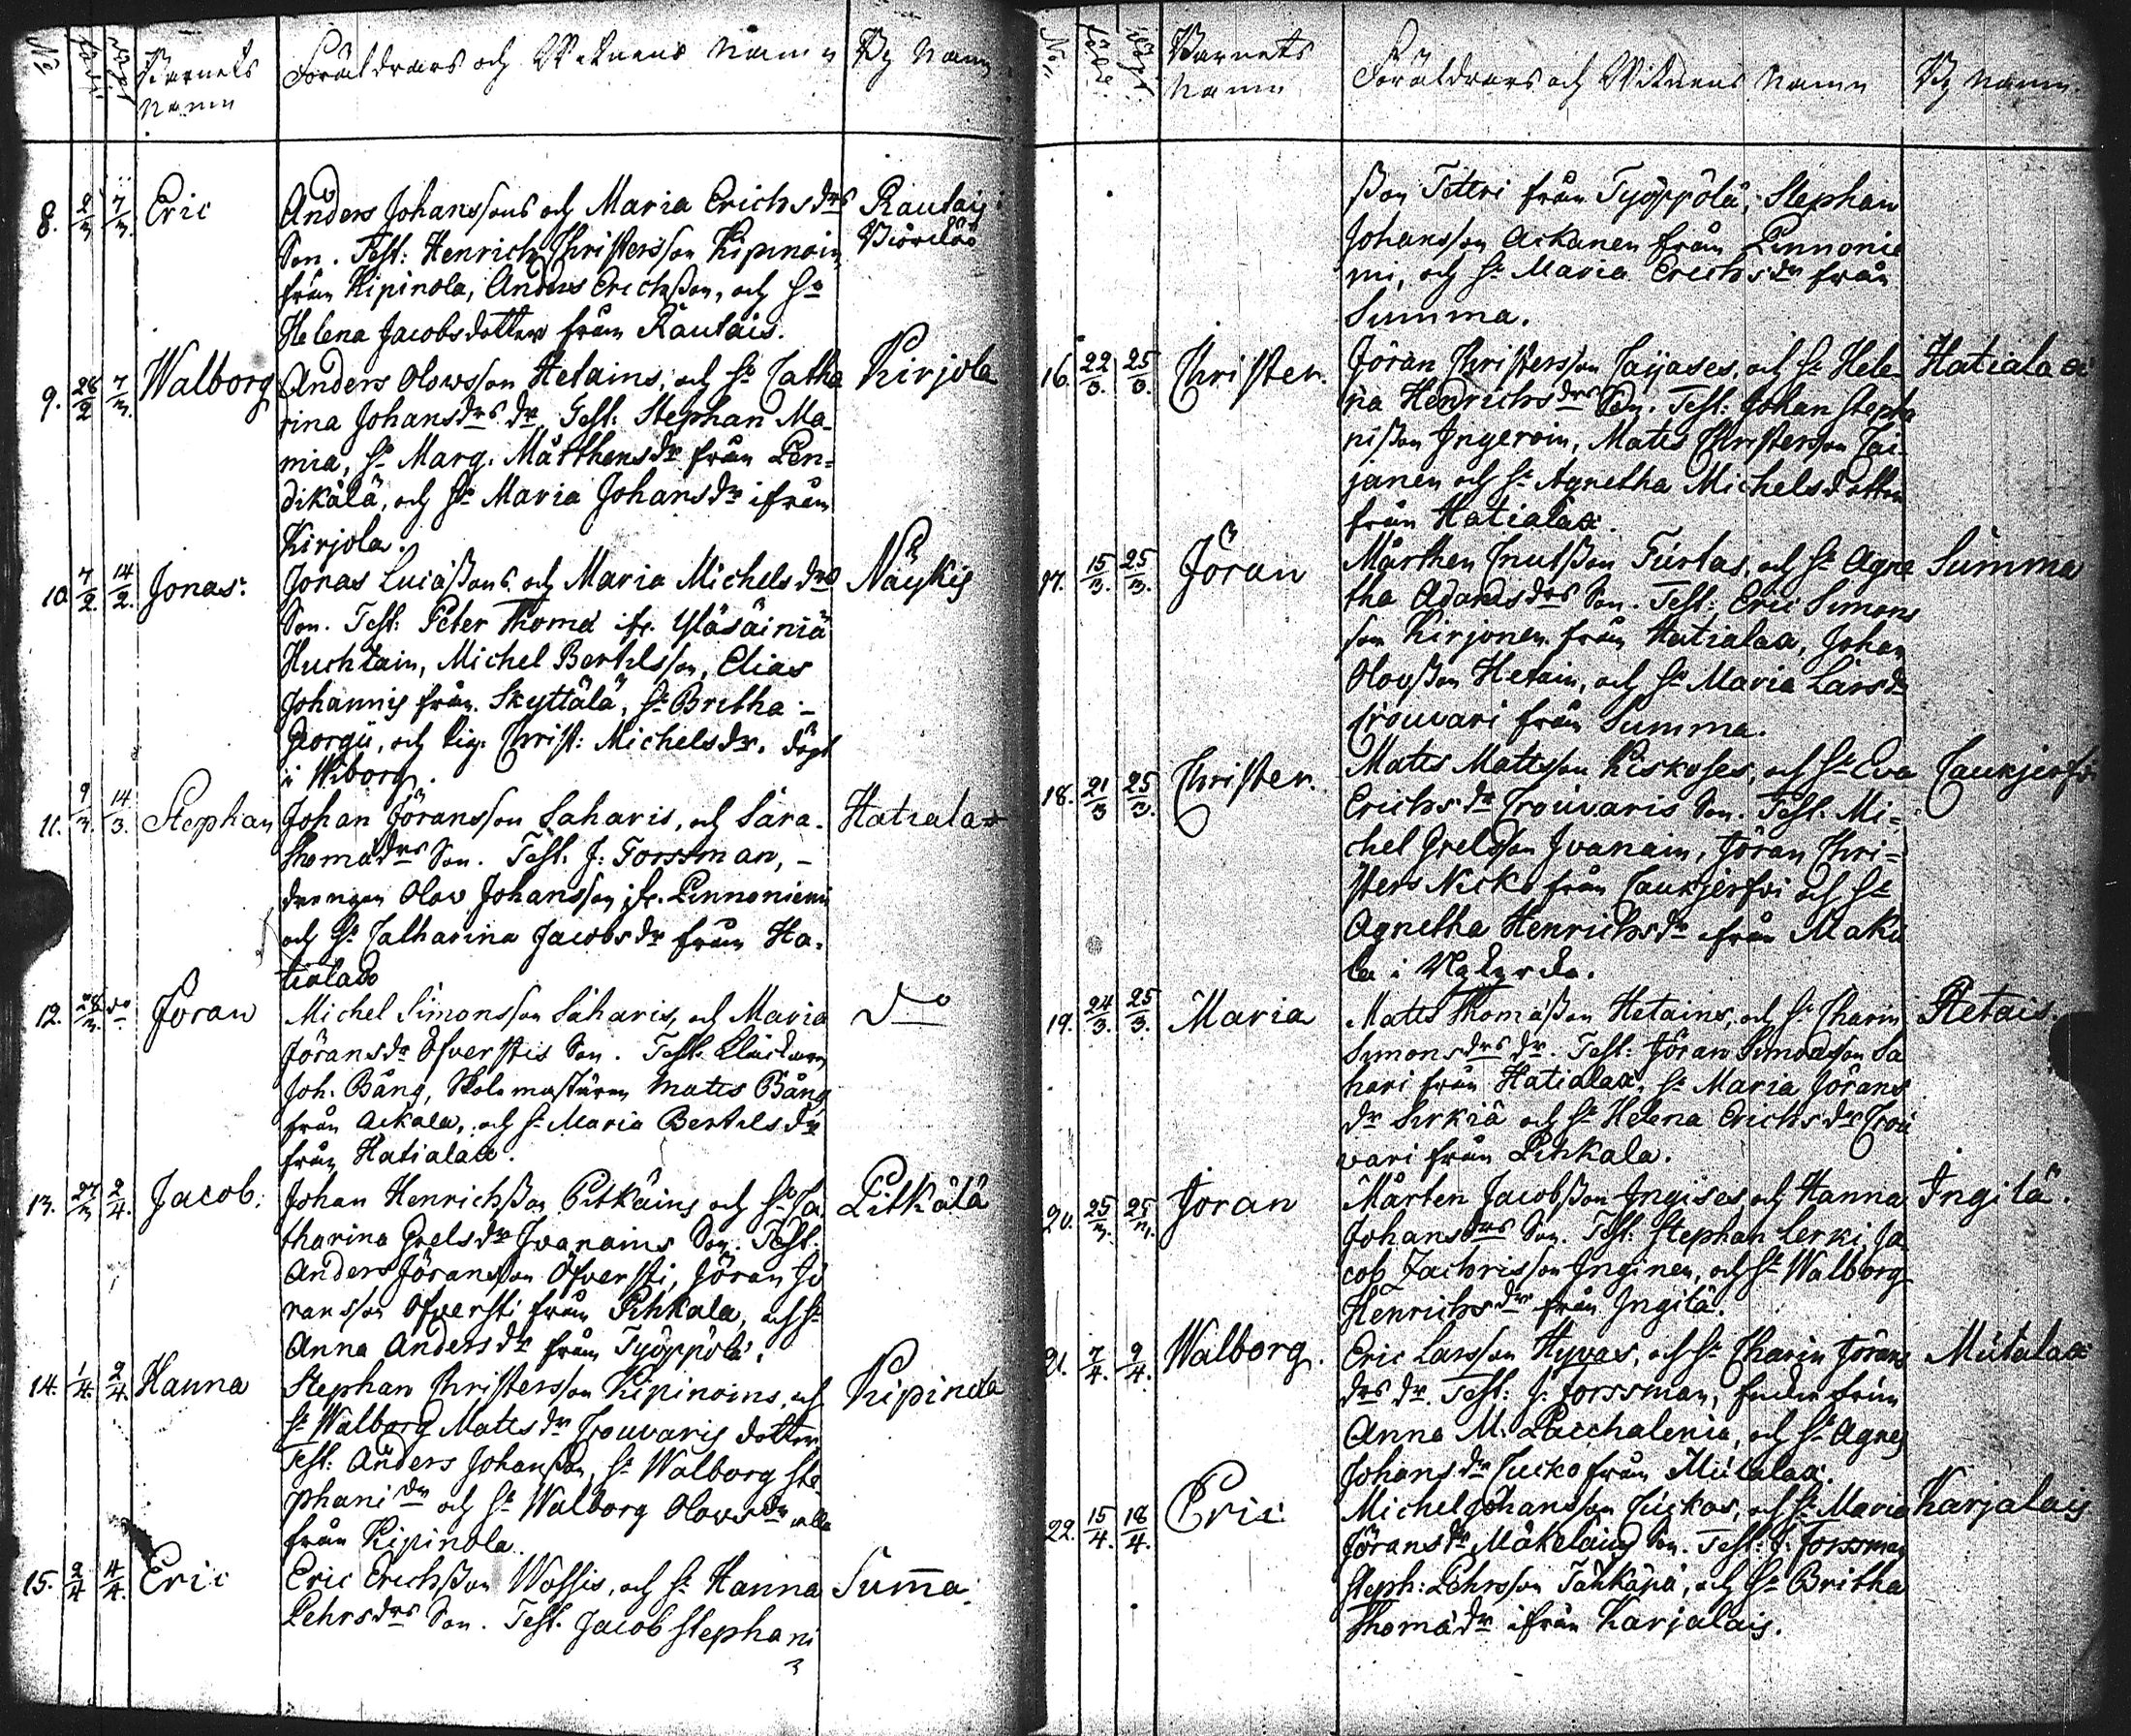 No född döpt Barnets Namn Föräldrars och Witnens Namn By Namn
8. 2/3 7/3. Eric Anders Johanssons och Maria Erichsdrs Rautais i
Son. Test: Henrich Christersson Kipinoin
från Kipinola, Anders Erichsson, och Ho
Helena Jacobsdotter från Rautais.
9. 28/2 7/3. Walborg Anders Olowsson Hetains, och Ho Catha Kirjola
rina Johansdrs dr. Test: Stephan Ma-
mia, Ho Marg. Mårthensdr från Pen=
dikälä, och Ho Maria Johansdr ifrån
Kirjola.
10. 7/2. 14/2. Jonas. Jonas Lucassons och Maria Michelsdrs Näykis
Son. Test: Peter Thomæ ifr. Yläsäiniä
Huchtain, Michel Bertelsson, Elias
Johannis från Skyttälä, Ho Britha -
Georgii, och Pig. Christ: Michelsdr. döpt
i Wiborg.
11. 9/3. 14/3. Stephan Johan Jöransson Saharis, och Sara Hatiala
Thomædrs Son. Test. J. Forssman, -
drengen Olov Johansson ifr. Pinnoniemi
och Ho Catharina Jacobsdr från Ha-
tialax
12. 28/3. do Jöran Michel Simonsson Saharis, och Maria do
Jöransdr Öfverstis Son. Test. Klåckaren
Joh. Bång, Skolemästaren Mates Bång
från Ackala, och Ho Maria Bertelsdr
från Hatialax.
13. 27/3 2/4. Jacob. Johan Henrichsson Pitkäins och Ho Ca Pitkälä
tharina Grelsdr Ivanains Son. Test.
Anders Jöransson Öfversti, Jöran Jö
ransson Öfversti från Pihkala, och Ho
Anna Andersdr från Työppölä.
14. 1/4. 2/4. Hanna Stephan Christersson Kipinoins, och Kipinola
Ho Walborg Matesdr Crouvaris dotter
Test: Anders Johansson, Ho Walborg Ste
phanidr och Ho Walborg Olovsdr alla
från Kipinola.
15. 2/4 4/4. Eric Eric Erichsson Wossis, och Ho Hanna Suma.
Pehrsdrs Son. Test. Jacob Stephani
No född döpt Barnets Namn Föräldrars och Witnens Namn By Namn.
sson Teteri från Työppölä, Stephan
Johansson Ackanen från Pinnonie
mi, och Ho Maria Erichsdr från
Summa.
16. 22/3. 25/3. Christer. Jöran Christersson Caijases, och Ho Hele Hatialax
na Henrichsdrs Son. Test: Johan Stepha
nisson Ingeroin, Mates Christersson Cai
janen och Ho Agnetha Michelsdotter
från Hatialax.
17. 15/3. 25/3. Jöran Mårthen Cnutsson Turtas, och Ho Agne Summa
tha Adamsdrs Son. Test: Eric Simons
son Kirjonen från Hatialax, Johan
Olovsson Hetain, och Ho Maria Larsdr
Crouvari från Summa.
18. 21/3 25/3. Christer. Mates Matsson Kiskoses, och Ho Eva Caukjerfvi
Erichsdr Crouvaris Son. Test. Mi=
chel Grelsson Ivanain, Jöran Chri=
sters Nicko från Caukjerfvi och Ho
Agnetha Henrichsdr ifrån Maku
la i Nykyrka.
19. 24/3. 25/3. Maria Mates Thomæsson Hetains, och Ho Charin Hetais.
Simonsdrs dr. Test: Jöran Simonsson Sa
hari från Hatialax, Ho Maria Jörans
dr Sirkiä och Ho Helena Erichsdr Crou
vari från Pihkala.
20. 25/3. 25/3. Jöran Mårten Jacobsson Ingises och Hanna Ingilä.
Johansdrs Son. Test: Stephan Lerki, Ja
cob Zachrisson Inginen, och Ho Walborg
Henrichsdr från Ingilä.
21. 7/4. 9/4. Walborg. Eric Larsson Hyvax, och Ho Charin Jörans Mutalax
drs dr. Test: J. Forssman,
Anna M. Pacchalenia, och Ho Agnes
Johansdr Cucko från Mutalax.
22. 15/4. 18/4. Eric Michel Johansson Cuckos, och Ho Maria Karjalais
Jöransdr Mäkeläins Son. Test: J. Forssman
Steph: Pehrsson Tahkäpä, och Ho Britha
Thomædr ifrån Karjalais.